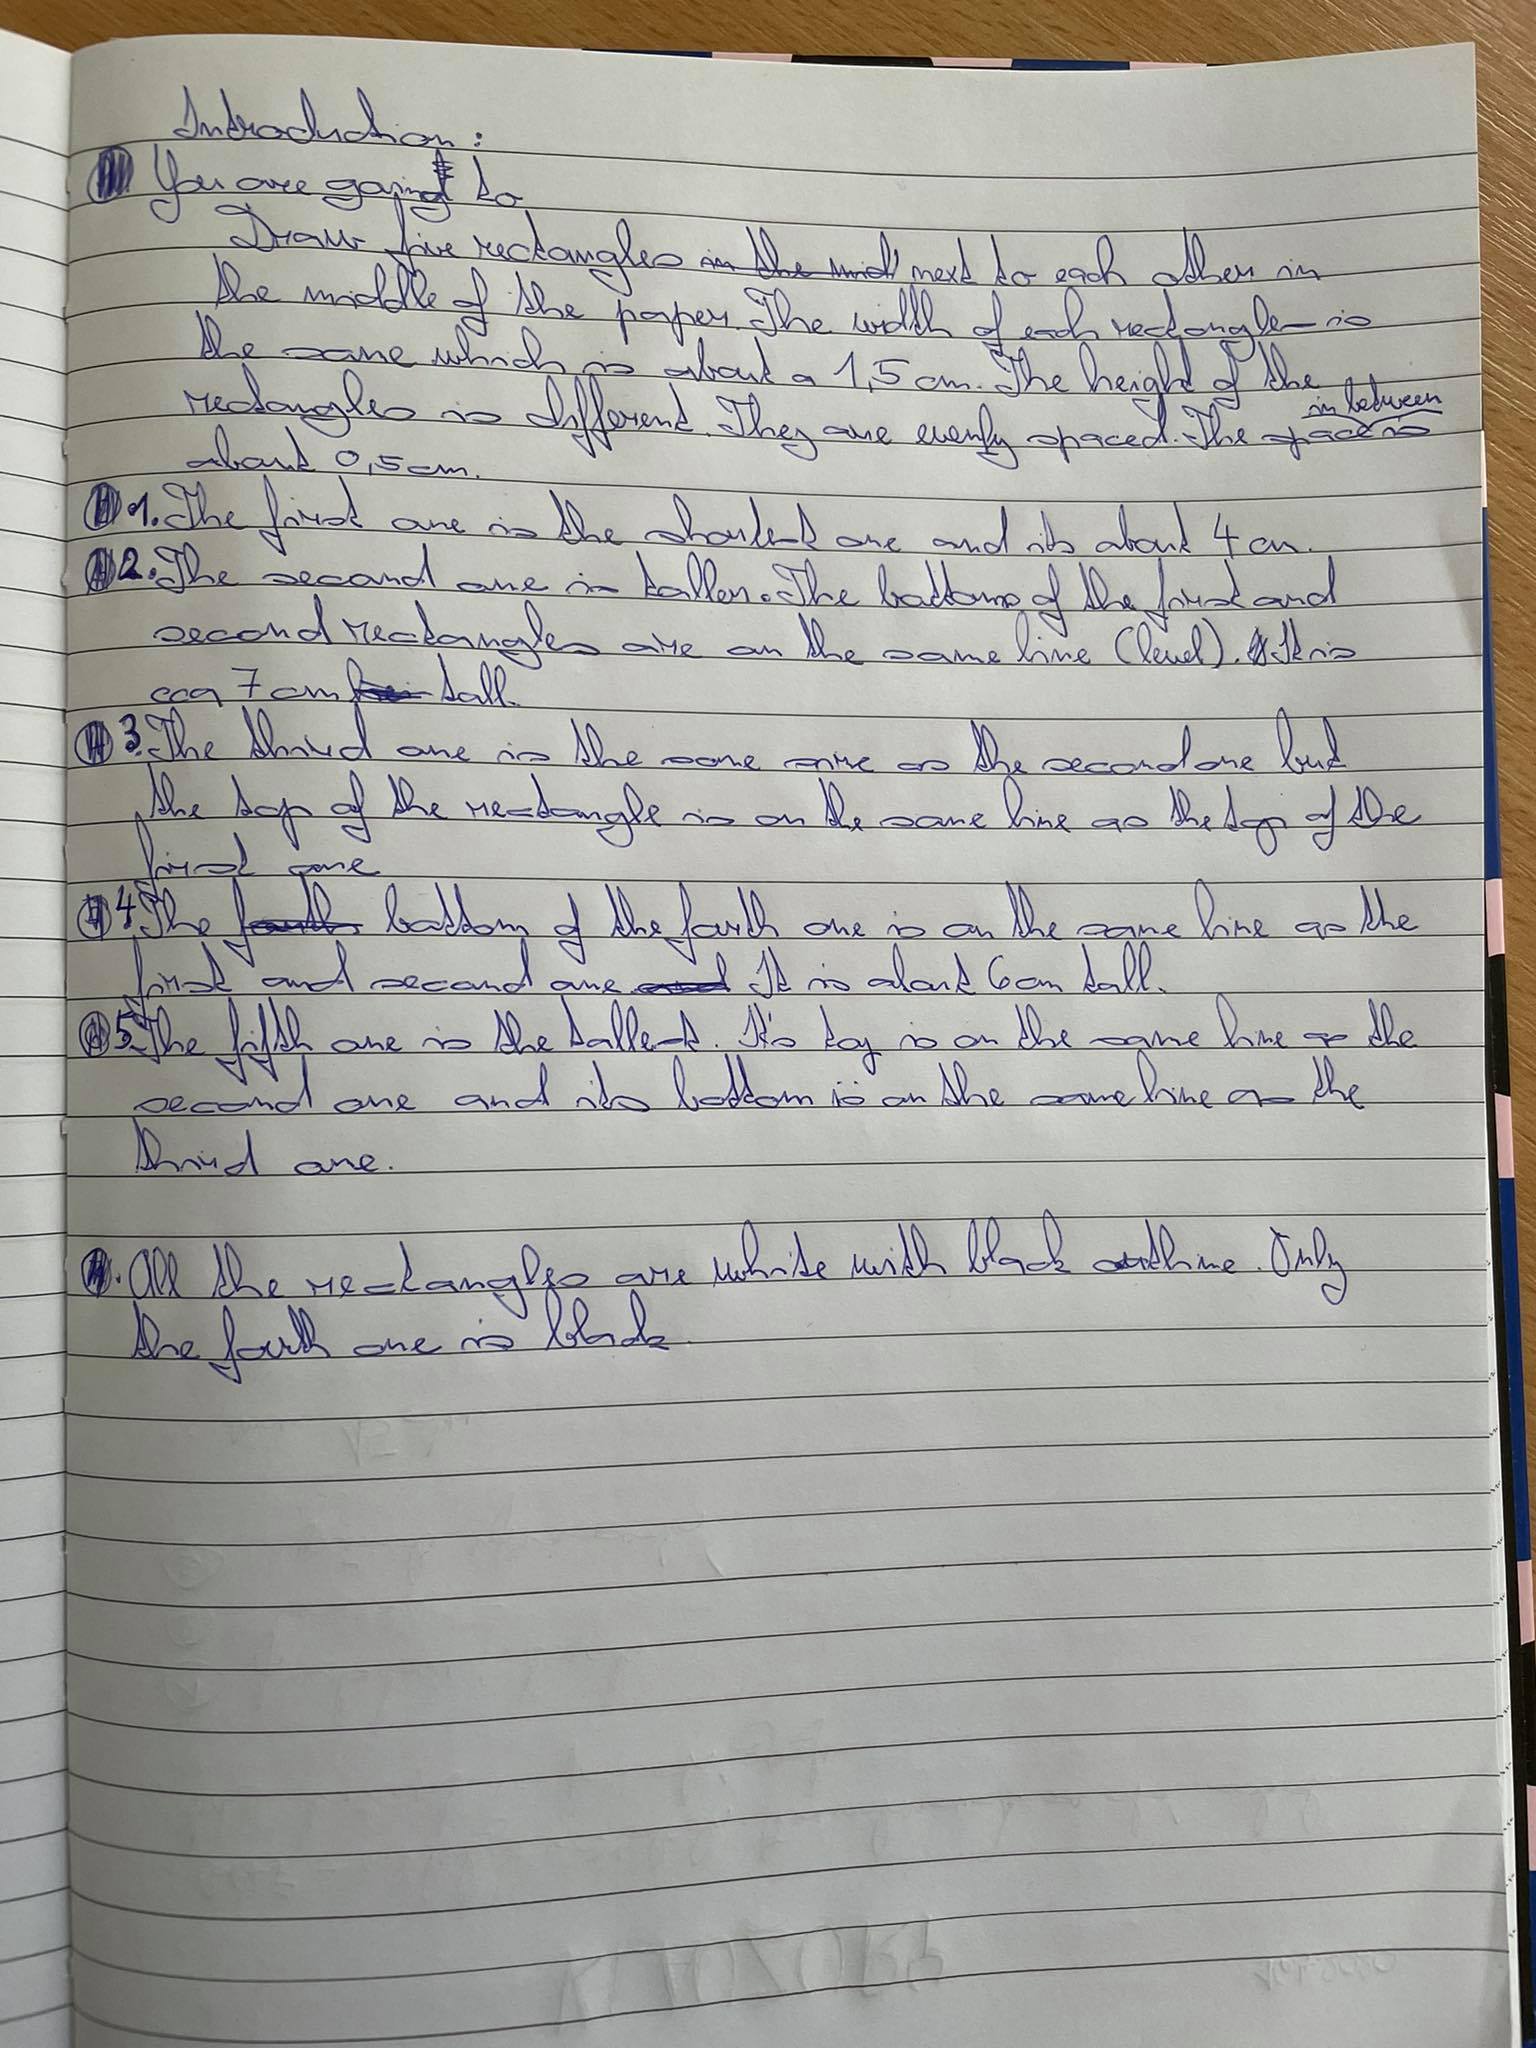 Introduction:
You are going to
Draw five rectangles in the mid next to each other in
the middle of the paper. The width of each rectangle is
the same which is about a 1,5 cm. The height of the
rectangles is different. They are evenly spaced. The space in between is
about 0,5 cm.
1. The first one is the shortest one and its about 4 cm.
2. The second one is taller. The bottoms of the first and
second rectangles are on the same line (level). It is
cca 7 cm tall.
3. The third one is the same size as the second one but
the top of the rectangle is on the same line as the top of the
first one.
4. The fourth bottom of the fourth one is on the same line as the
first and second one and It is about 6 cm tall.
5. The fifth one is the tallest. It's top is on the same line as the
second one and its bottom is on the same line as the
third one.
All the rectangles are white with black outline. Only
the fourth one is black.